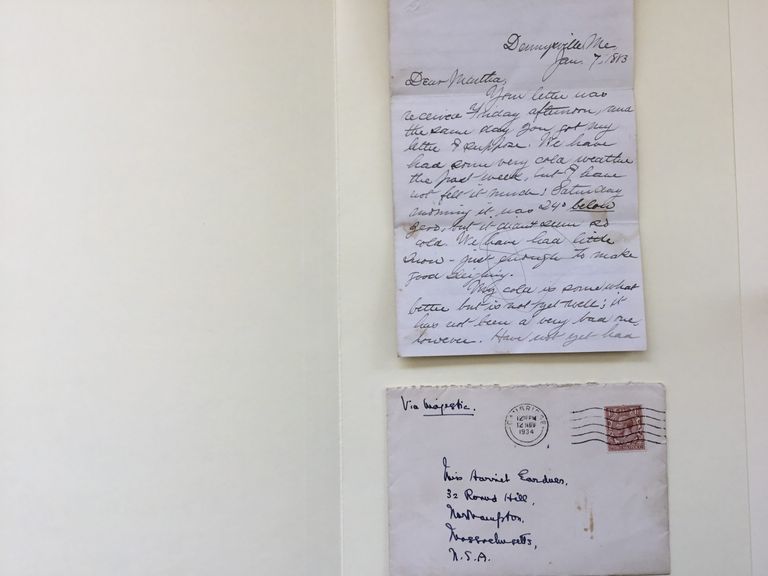 Dennysville, Me.
Jan. 7, 1883
Dear Martha,
Your letter was
received Friday afternoon, and
the same day you got my
letter I suppose. We have
had some very cold weather
the past week, but I have
not felt it much. Saturday
morning it was 24° below
zero, but it didn't seem so
cold. We have had little
snow - just enough to make
good sleighing.
My cold is somewhat
better but is not yet well; it
has not been a very bad one,
however. Have not yet had
Via Majestic.
CAMBRIDGE
12 NOV
1934
Miss Harriet Gardner,
32 Round Hill,
Northampton,
Massachusetts,
U.S.A.